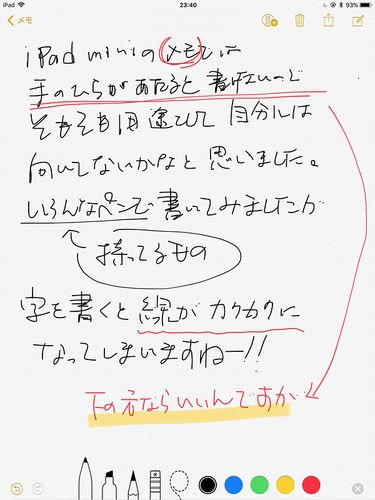 iPad 23:40 93%
メモ
iPad miniのメモでは
手のひらがあたると書けないので
そもそも用途として自分には
向いてないかなと思いました。
いろんなペンで書いてみましたが
持ってるもの
字を書くと線がカクカクに
なってしまいますねー!!
下の方ならいいんですが